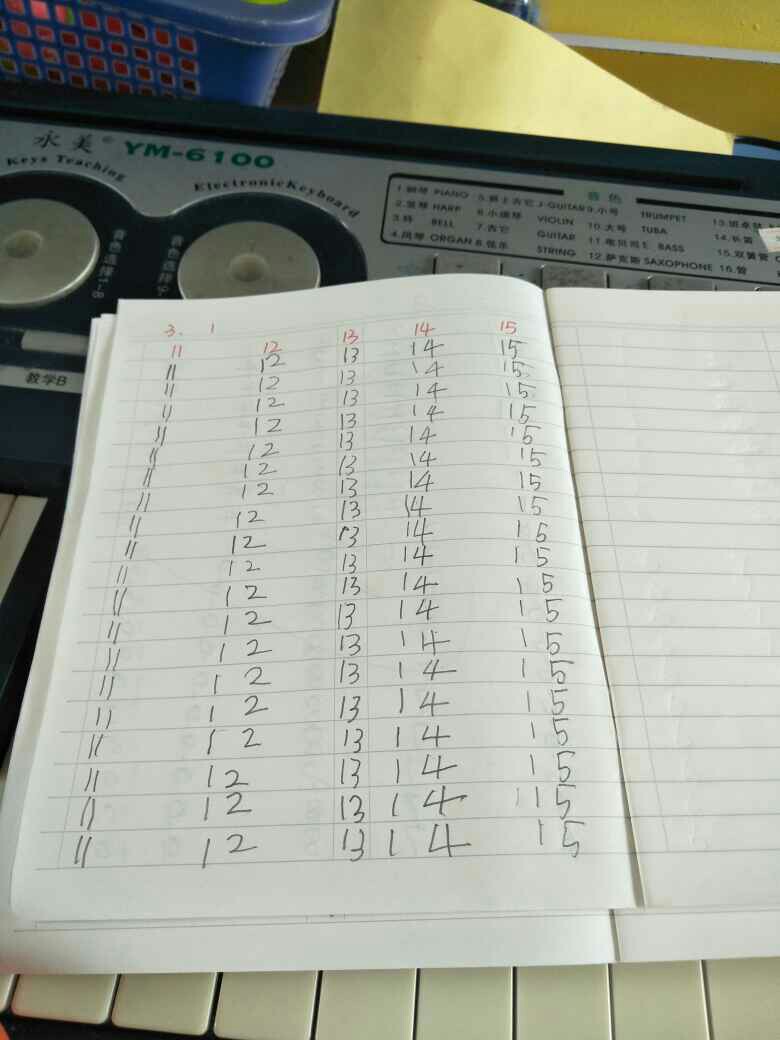 永美® YM-6100
Keys Teaching
ElectronicKeyboard
音色
1.钢琴 PIANO 5.爵士吉它 J-GUITAR 9.小号 TRUMPET
2.竖琴 HARP 6.小提琴 VIOLIN 10.大号 TUBA
3.钟 BELL 7.吉它 GUITAR 11.电贝司 E BASS 14.长笛
4.风琴 ORGAN 8.弦乐 STRING 12.萨克斯 SAXOPHONE 15.双簧管
16.管
音色选择1-8
教学B
3. 1
11 12 13 14 15
11 12 13 14 15
11 12 13 14 15
11 12 13 14 15
11 12 13 14 15
11 12 13 14 15
11 12 13 14 15
11 12 13 14 15
11 12 13 14 15
11 12 13 14 15
11 12 13 14 15
11 12 13 14 15
11 12 13 14 15
11 12 13 14 15
11 12 13 14 15
11 12 13 14 15
11 12 13 14 15
11 12 13 14 15
11 12 13 14 115
11 12 13 14 15